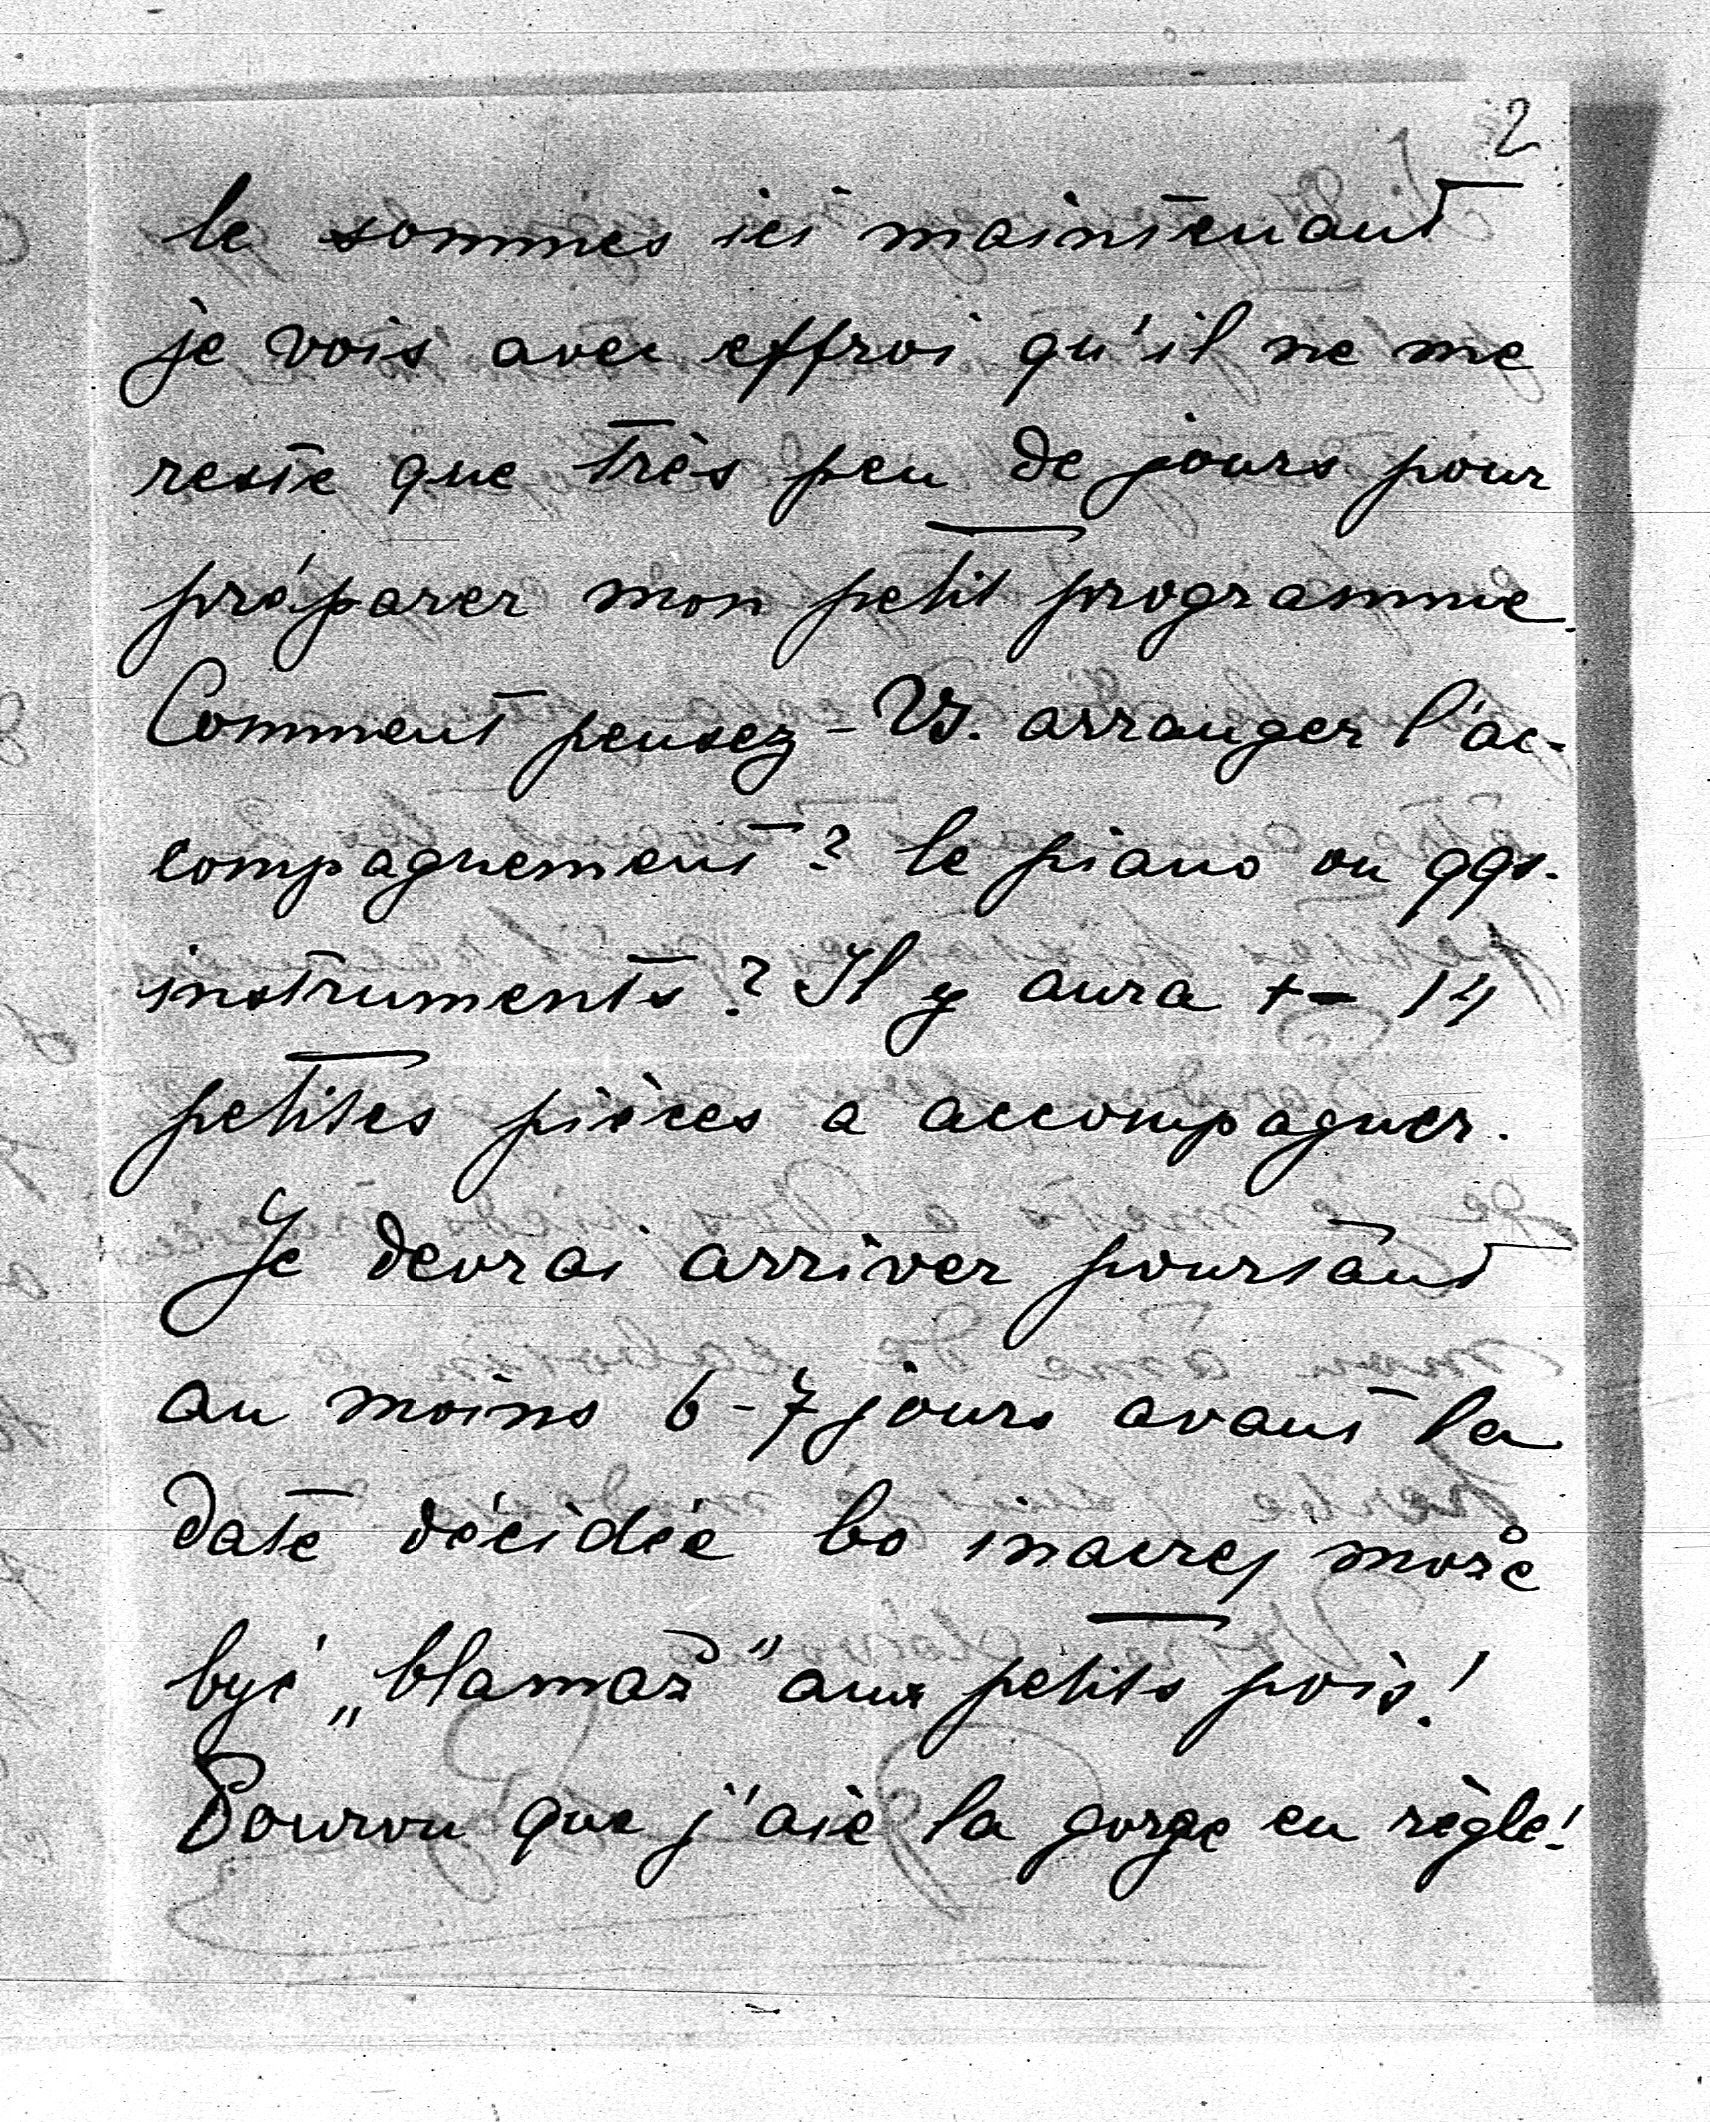 2
le sommes ici maintenant
je vois avec effroi qu'il ne me
reste que très peu de jours pour
préparer mon petit programme.
Comment pensez-Vs. arranger l'ac-
compagnement? le piano ou qqs.
instruments? Il y aura +- 14
petites pièces a accompagner.
Je devrai arriver pourtant
au moins 6-7 jours avant la
date décidée bo inaczej może
być „blamaż” aux petits pois!
Pourvu que j'aie la gorge en règle!